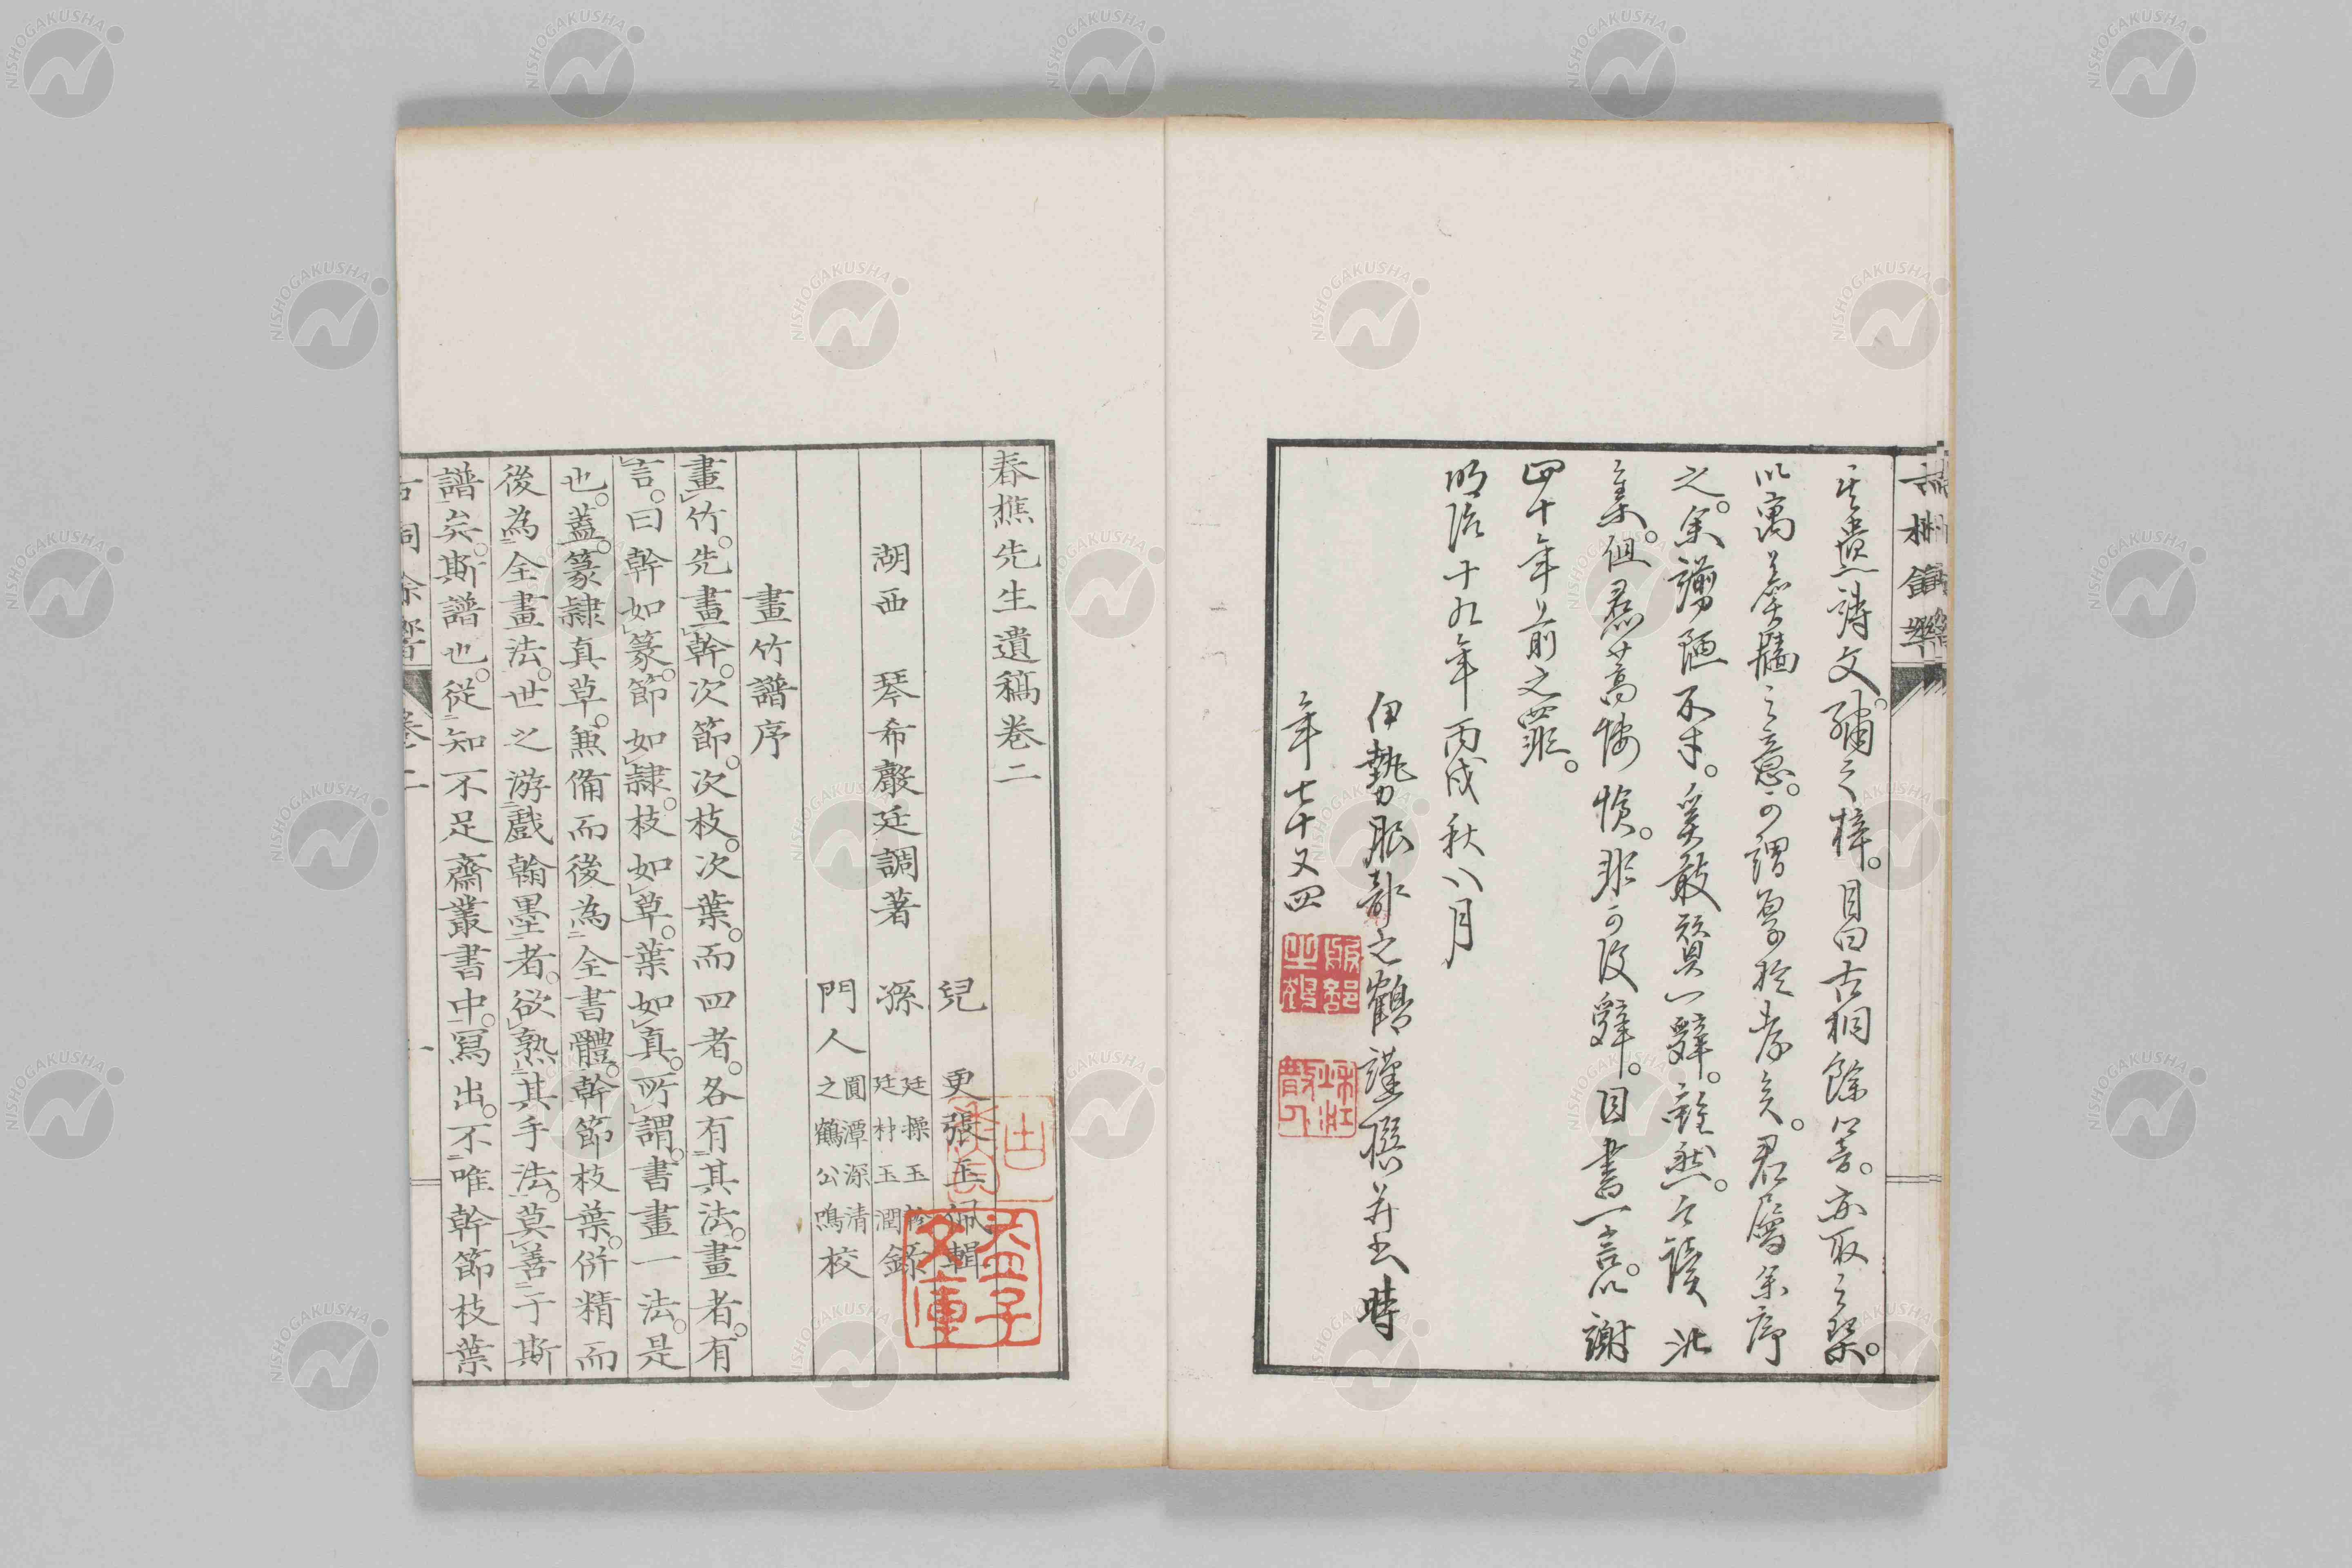 古桐餘響
其遺詩文。繡之梓。目曰古桐餘筈。亦取之琴。
以寓羹牆之意。可謂篤於孝矣。君屬余序
之。余謭陋不才。奚敢贊一辭。雖然。
四十年前之罪。
明治十九年丙戌秋八月
伊勢服部之鶴謹撰并書時
年七十又四
春樵先生遺稿卷二
兒 更張玉佩輯
湖西 琴希聲廷調著 孫 廷操玉 廷材玉潤 錄
門人 圓潭深清 之鶴公鳴 校
畫竹譜序
畫竹。先畫幹。次節。次枝。次葉。而四者。各有其法。畫者。有
言。曰幹如篆。節如隷。枝如草。葉如真。所謂。書畫一法。是
也。蓋。篆隷真草。無備而後為全書體。幹節枝葉。併精而
後為全畫法。世之游戲翰墨者。欲熟其手法。莫善于斯
譜矣。斯譜也。從知不足齋叢書中。寫出。不唯幹節枝葉
古桐餘響 卷二 一
益子文庫
NISHOGAKUSHA